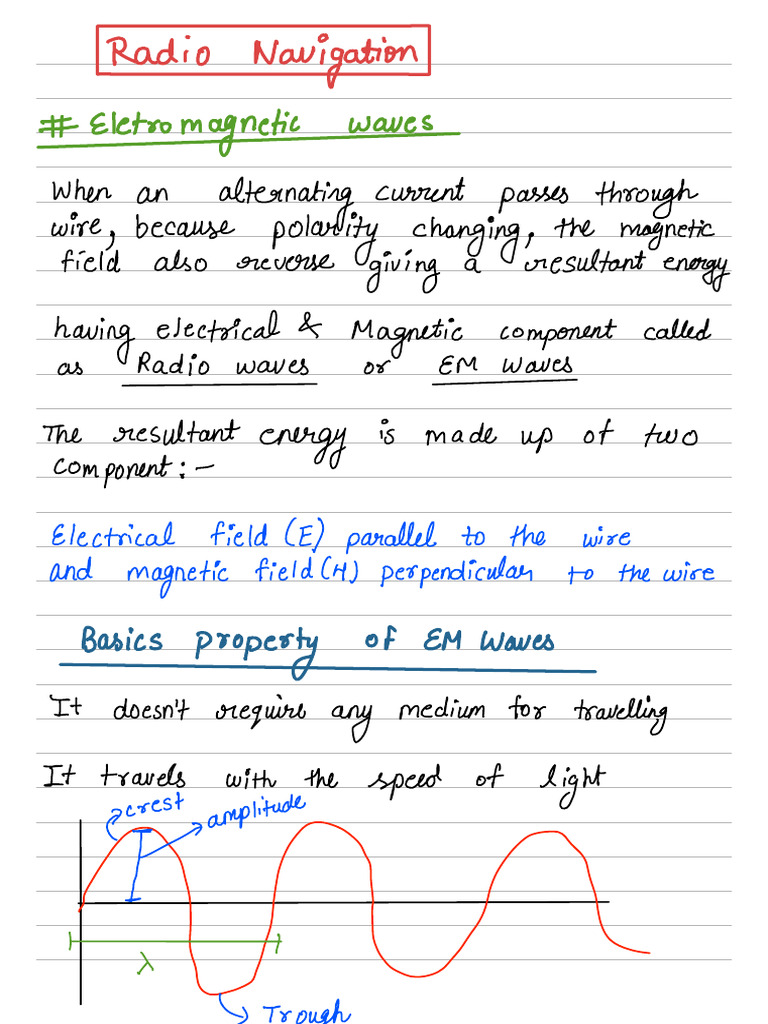 Radio Navigation
# Eletromagnetic waves
When an alternating current passes through
wire, because polarity changing, the magnetic
field also reverse giving a resultant energy
having electrical & Magnetic component called
as Radio waves or EM Waves
The resultant energy is made up of two
component:-
Electrical field (E) parallel to the wire
and magnetic field (H) perpendicular to the wire
Basics property of EM Waves
It doesn't require any medium for travelling
It travels with the speed of light
crest
amplitude
λ
Trough